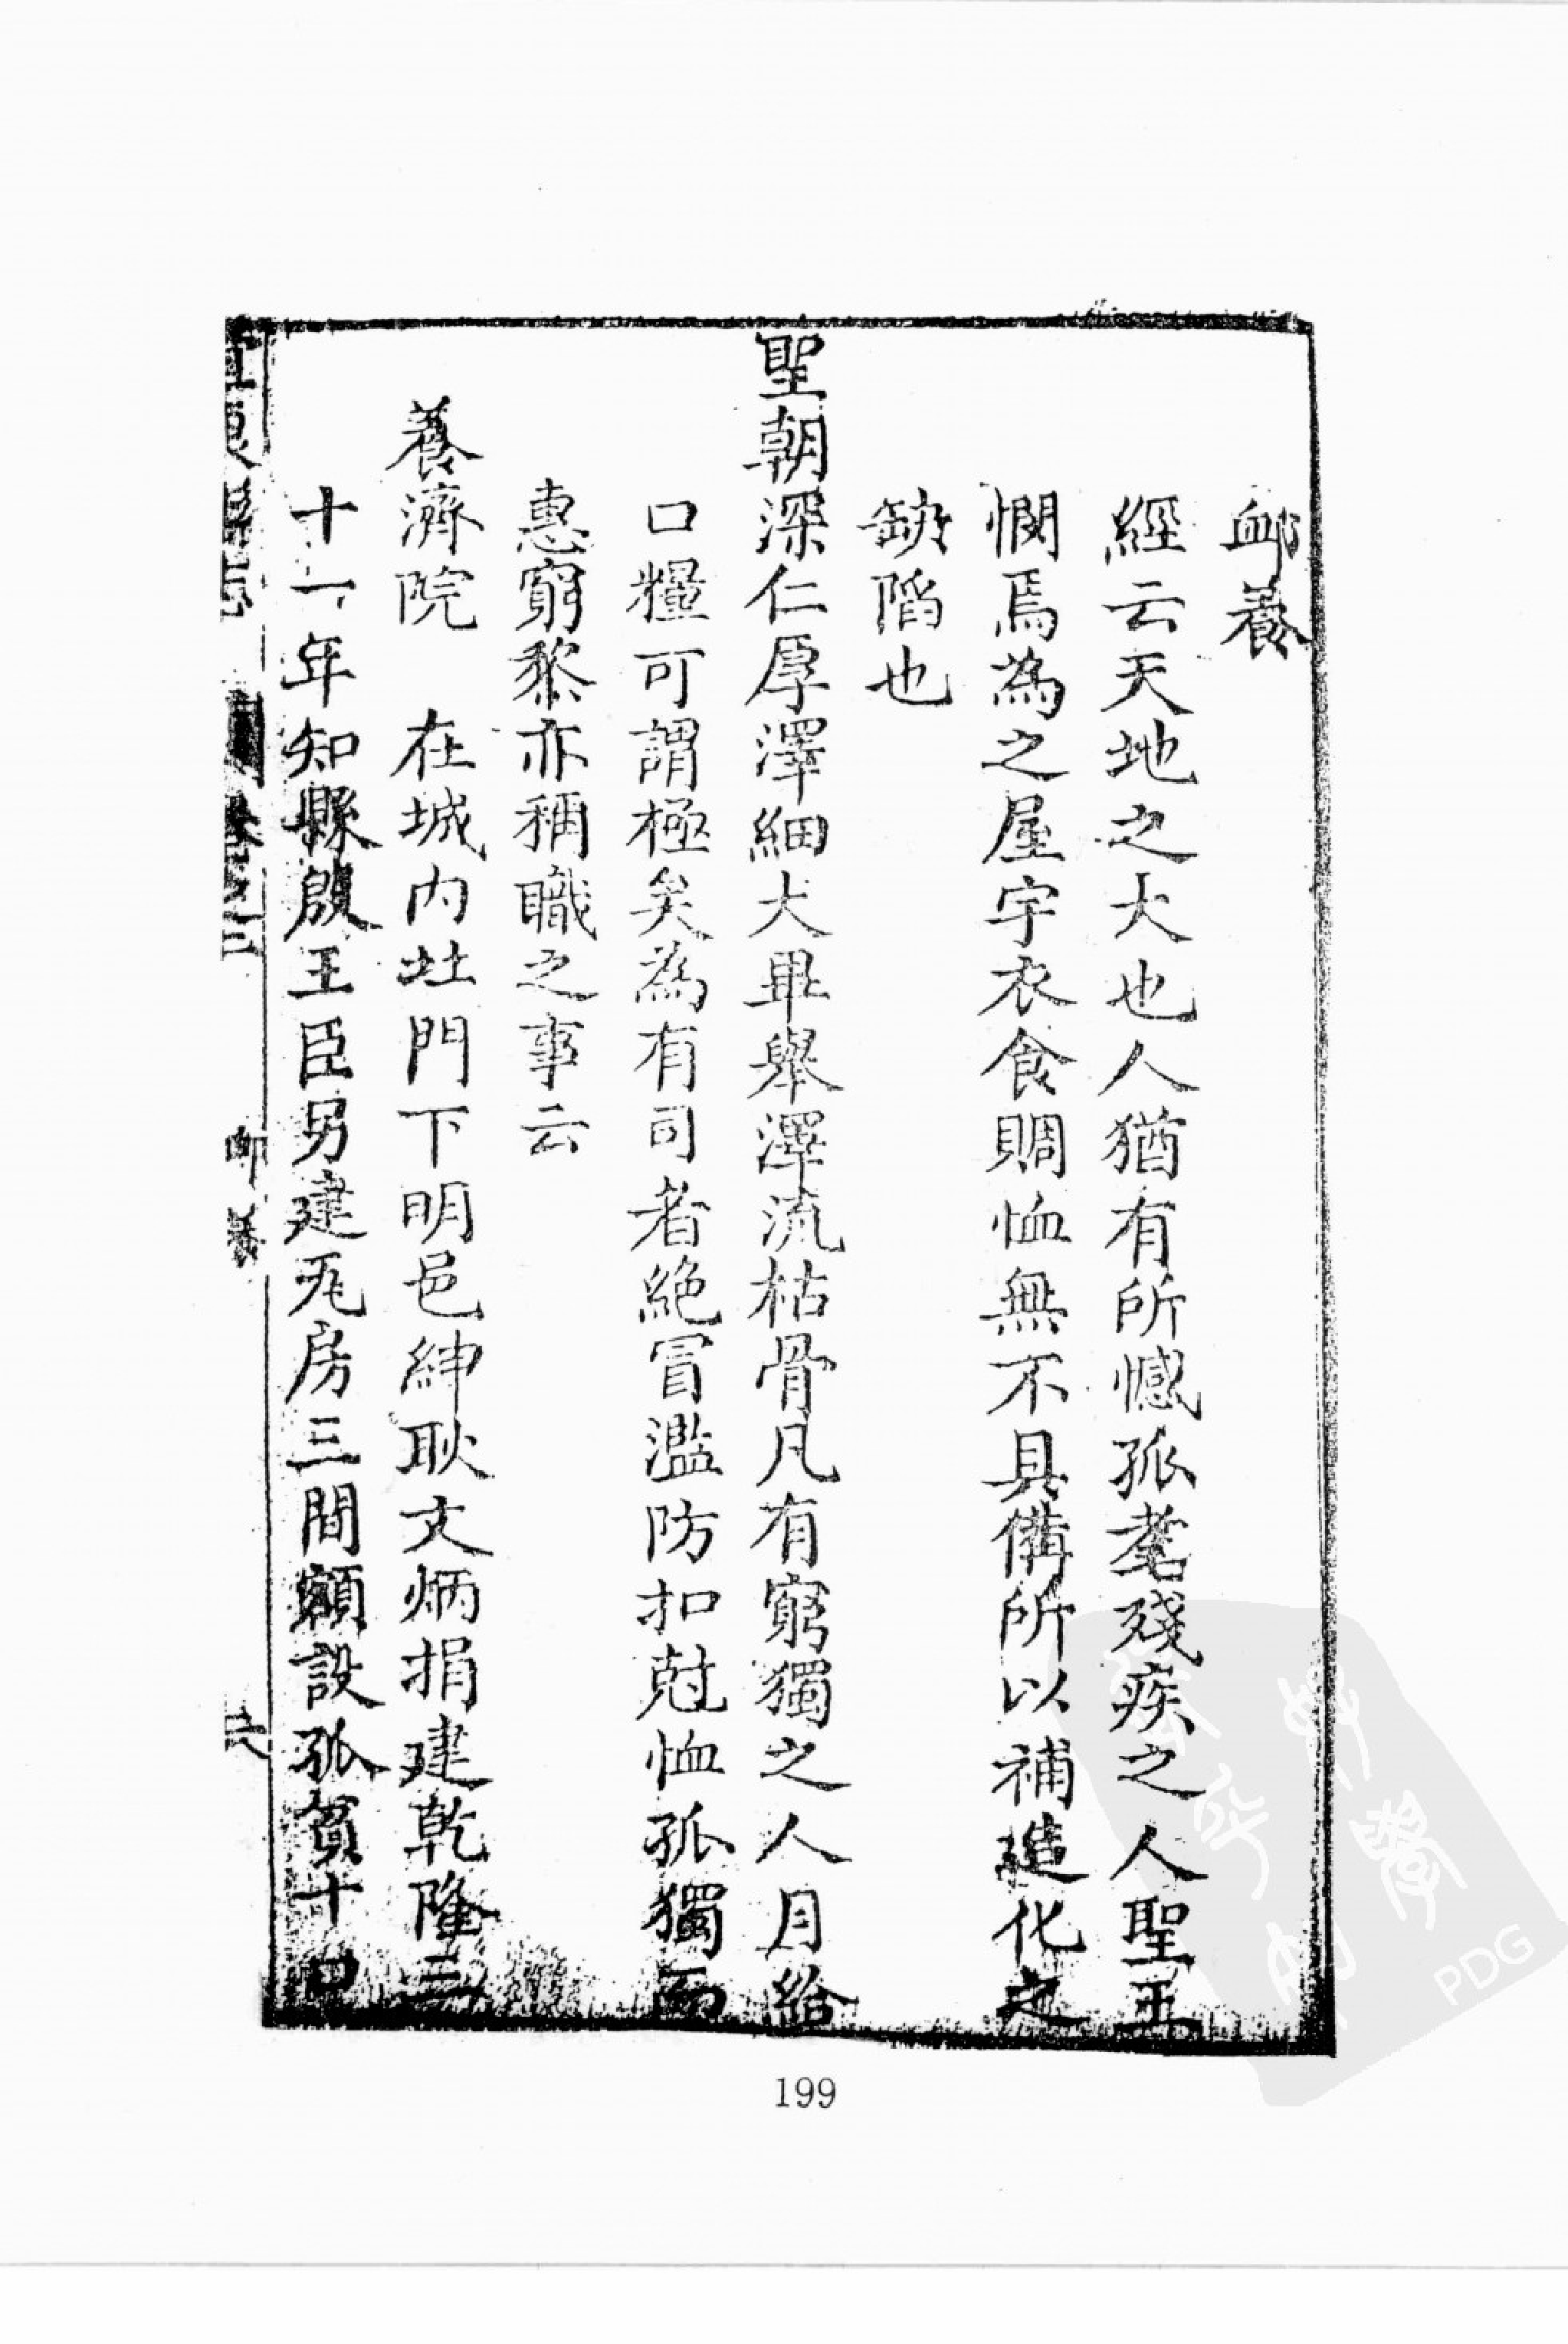 卹養
經云天地之大也人猶有所憾孤耄殘疾之人聖王
憫焉為之屋宇衣食賙恤無不具備所以補造化之
缺陷也
聖朝深仁厚澤細大畢舉澤流枯骨凡有窮獨之人月給
口糧可謂極矣為有司者絶冒濫防扣尅恤孤獨而
惠窮黎亦稱職之事云
養濟院　在城內北門下明邑紳耿文炳捐建乾隆三
十一年知縣殷王臣另建瓦房三間額設孤貧十口
縣志　卷之二　卹養
199
PDG